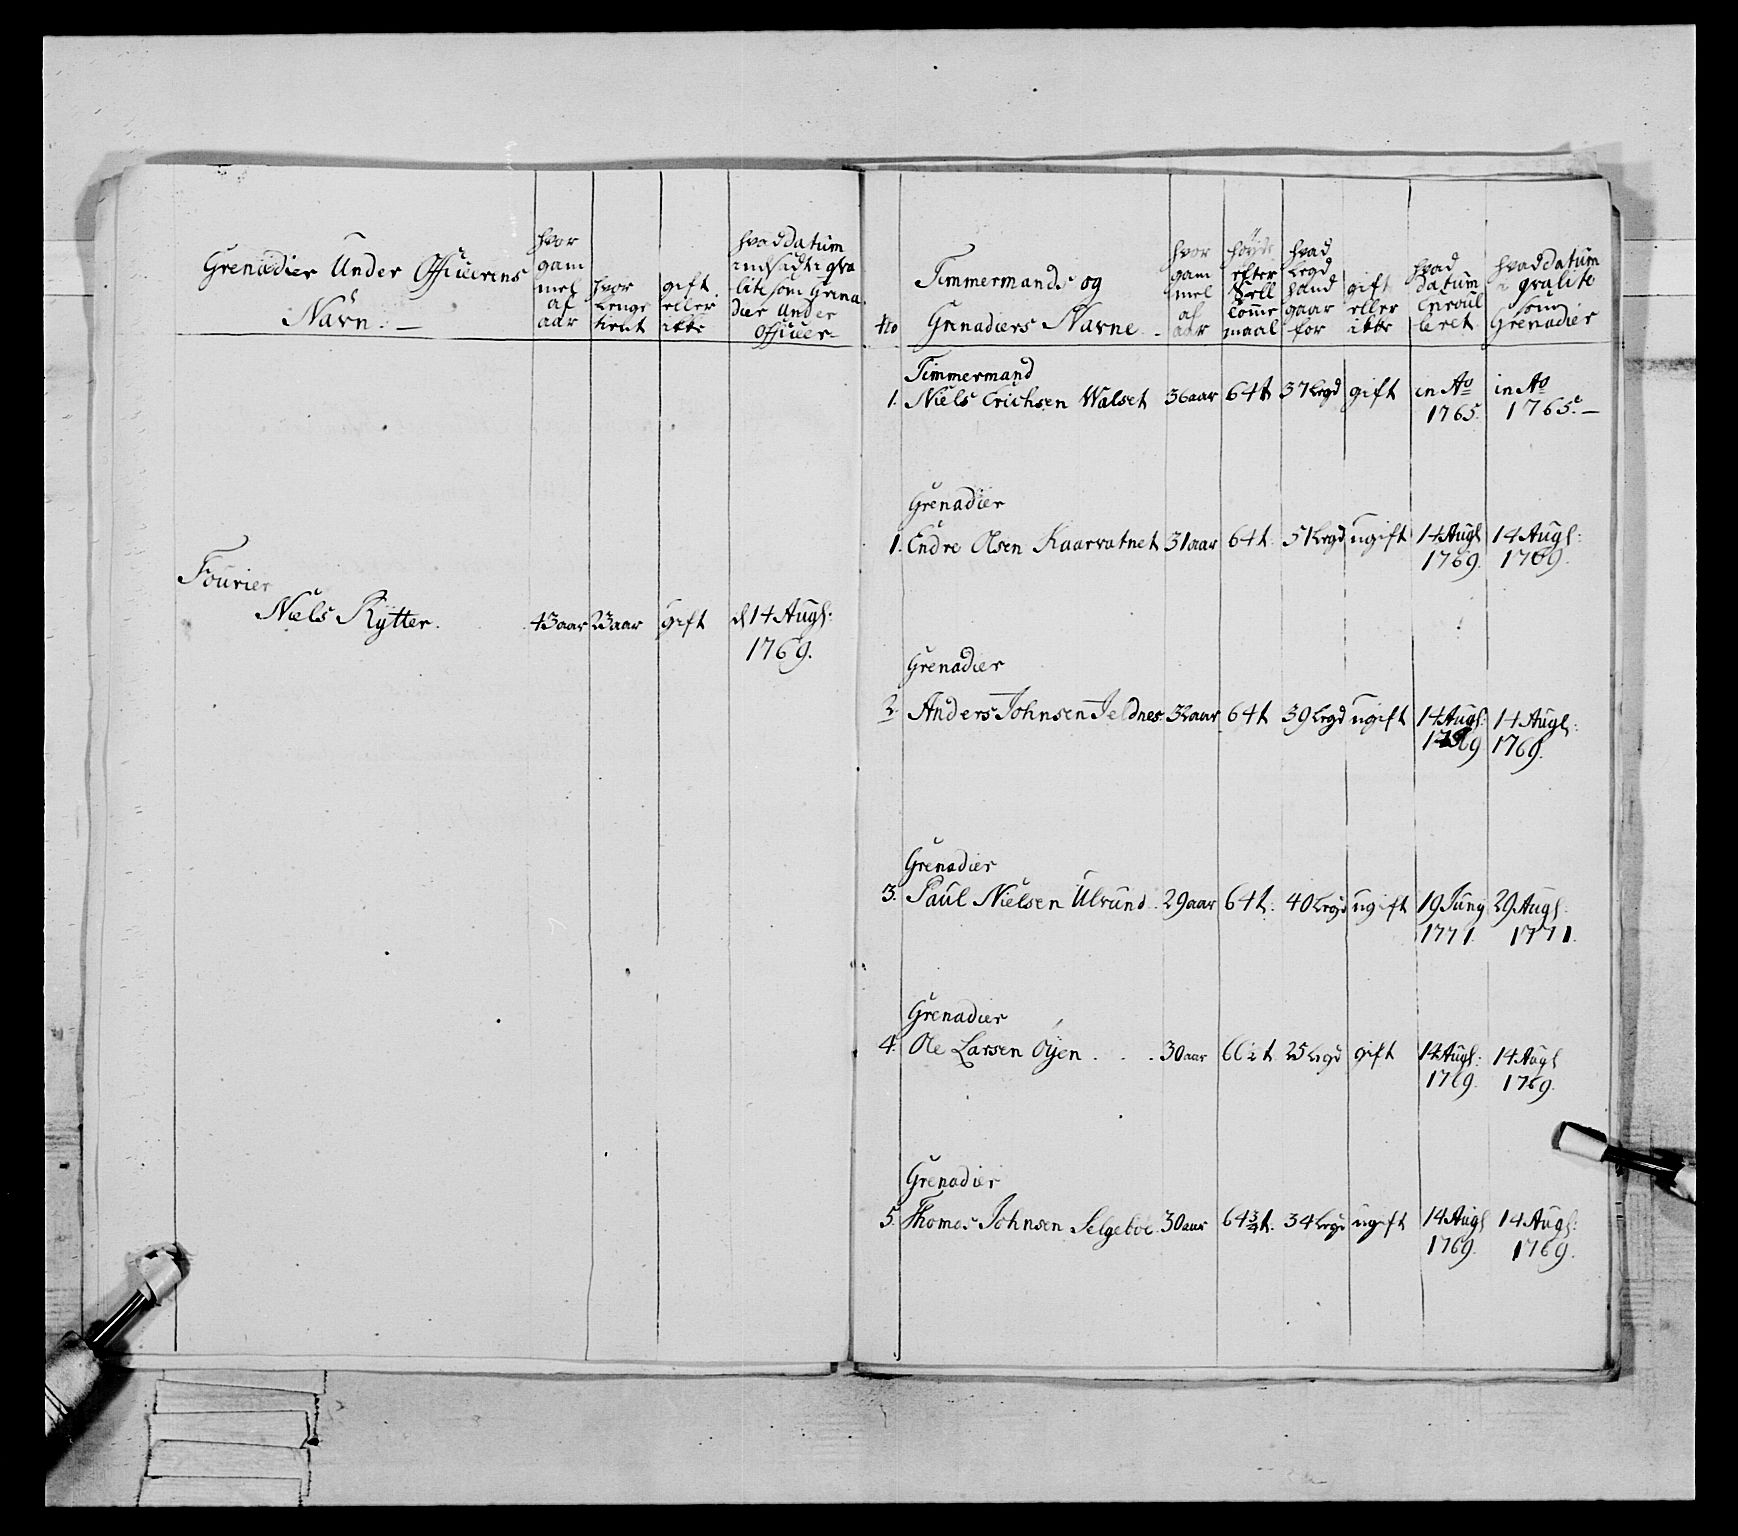 Grenadier Under Officerens
Navn. —
hvor
gam
mel
af
aar
hvor
lenge
tient
gift
eller
ikke
hvad datum
indsadt i qva
lité som Grena
dier Under
Officer
Fourier
Niels Rytter. 43 aar 23 aar gift d 14 Augs:
1769.
No
Timmermands og
Grenadiers Navne
hvor
gam
mel
af
aar
høyde
efter
Sell
Comme
maal
hvad
Legd
hand
gaar
for
gift
eller
ikke
hvad
datum
Enroul
leret
hvad datum
i qvalite
som
Grenadier
Timmermand
1. Niels Erichsen Walset 36 aar 64 t 37 Legd gift in Ao in Ao
1765. 1765. —
Grenadier
1. Endre Olsen Kaarvatnet 31 aar 64 t. 51 Legd ugift 14 Augs 14 Augs:
1769. 1769.
Grenadier
2. Anders Johnsen Jeldnes 32 aar 64 t 39 Legd ugift 14 Augs: 14 Augs:
1769 1769.
Grenadier
3. Paul Nielsen Ulvund 29 aar 64 t. 40 Legd ugift 19 Juny 29 Augs.
1771. 1771.
Grenadier
4. Ole Larsen Öyen . . . 30 aar 66 ½ t. 25 Legd gift 14 Augs: 14 Augs
1769. 1769.
Grenadier
5. Thomas Johnsen Selgeboe 30 aar 64 ¾ t. 34 Legd ugift 14 Augs 14 Augs:
1769. 1769.